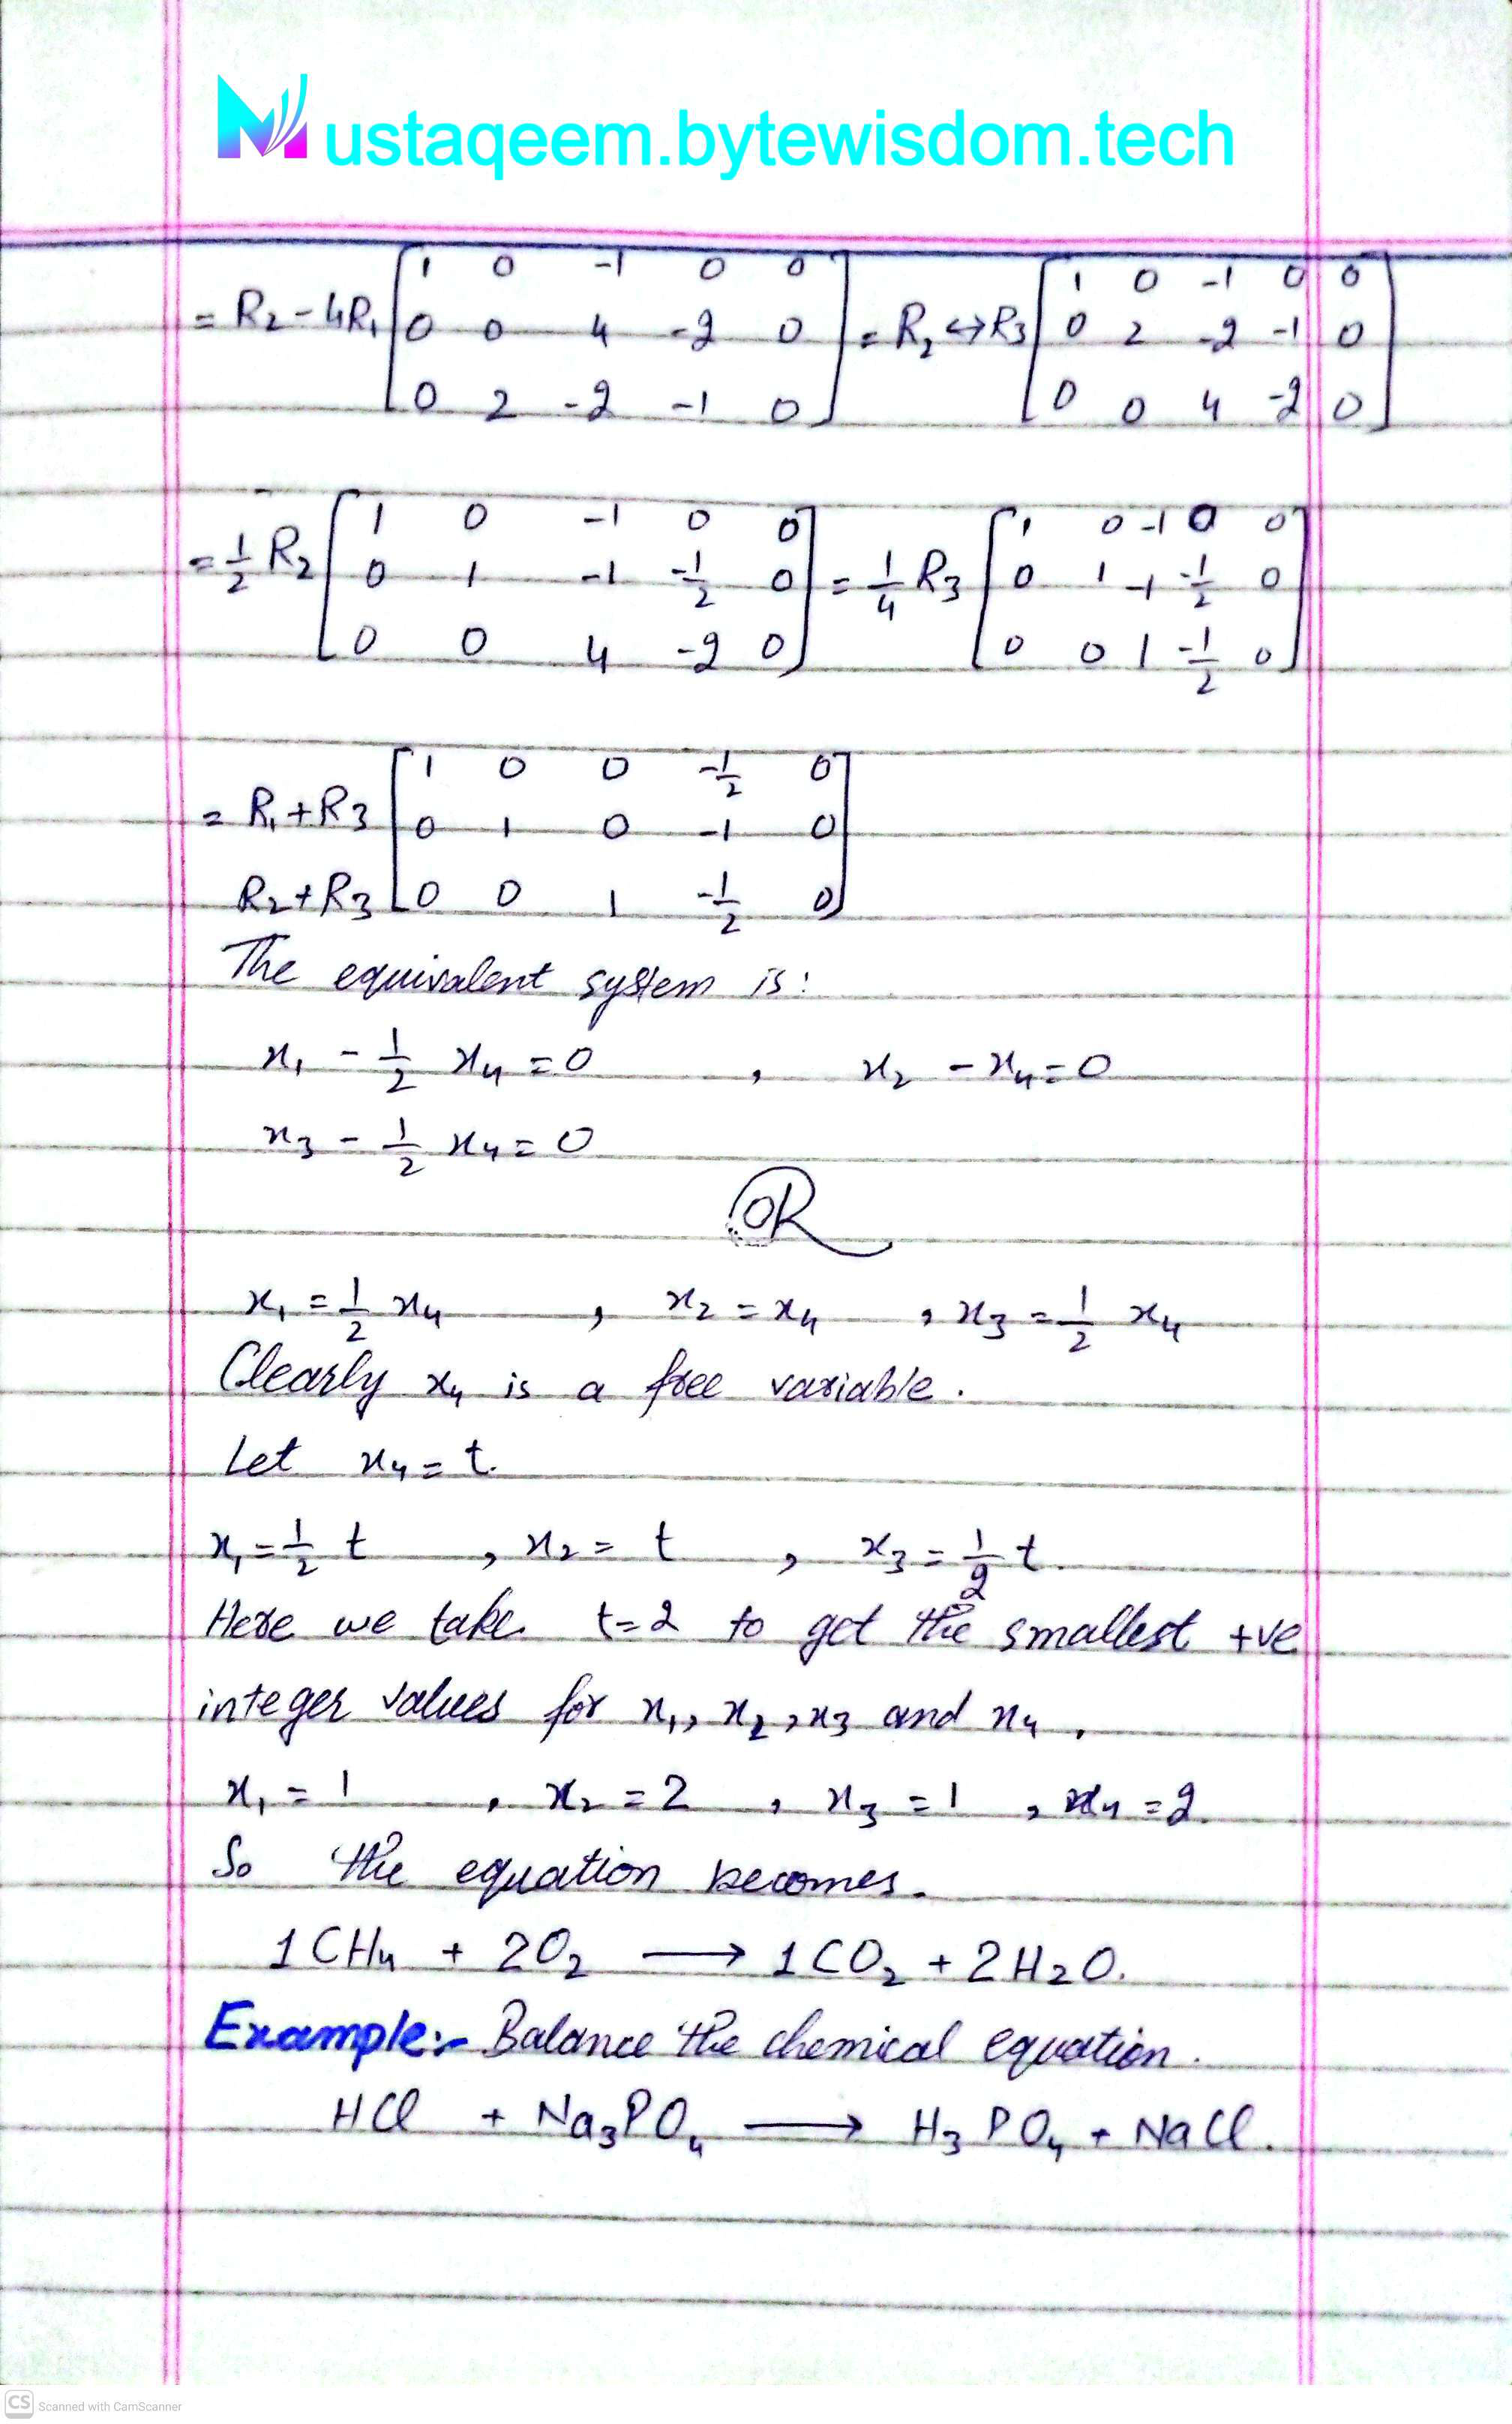 Mustaqeem.bytewisdom.tech
= R₂-4R₁ [1 0 -1 0 0; 0 0 4 -2 0; 0 2 -2 -1 0] = R₂↔R₃ [1 0 -1 0 0; 0 2 -2 -1 0; 0 0 4 -2 0]
= 1/2 R₂ [1 0 -1 0 0; 0 1 -1 -1/2 0; 0 0 4 -2 0] = 1/4 R₃ [1 0 -1 0 0; 0 1 -1 -1/2 0; 0 0 1 -1/2 0]
= R₁+R₃ R₂+R₃ [1 0 0 -1/2 0; 0 1 0 -1 0; 0 0 1 -1/2 0]
The equivalent system is:
x₁ - 1/2 x₄ = 0 , x₂ - x₄ = 0
x₃ - 1/2 x₄ = 0
OR
x₁ = 1/2 x₄ , x₂ = x₄ , x₃ = 1/2 x₄
Clearly x₄ is a free variable.
Let x₄ = t.
x₁ = 1/2 t , x₂ = t , x₃ = 1/2 t.
Here we take t=2 to get the smallest +ve
integer values for x₁, x₂, x₃ and x₄.
x₁ = 1 , x₂ = 2 , x₃ = 1 , x₄ = 2.
So the equation becomes.
1CH₄ + 2O₂ → 1CO₂ + 2H₂O.
Example:- Balance the chemical equation.
HCl + Na₃PO₄ → H₃PO₄ + NaCl.
CS Scanned with CamScanner